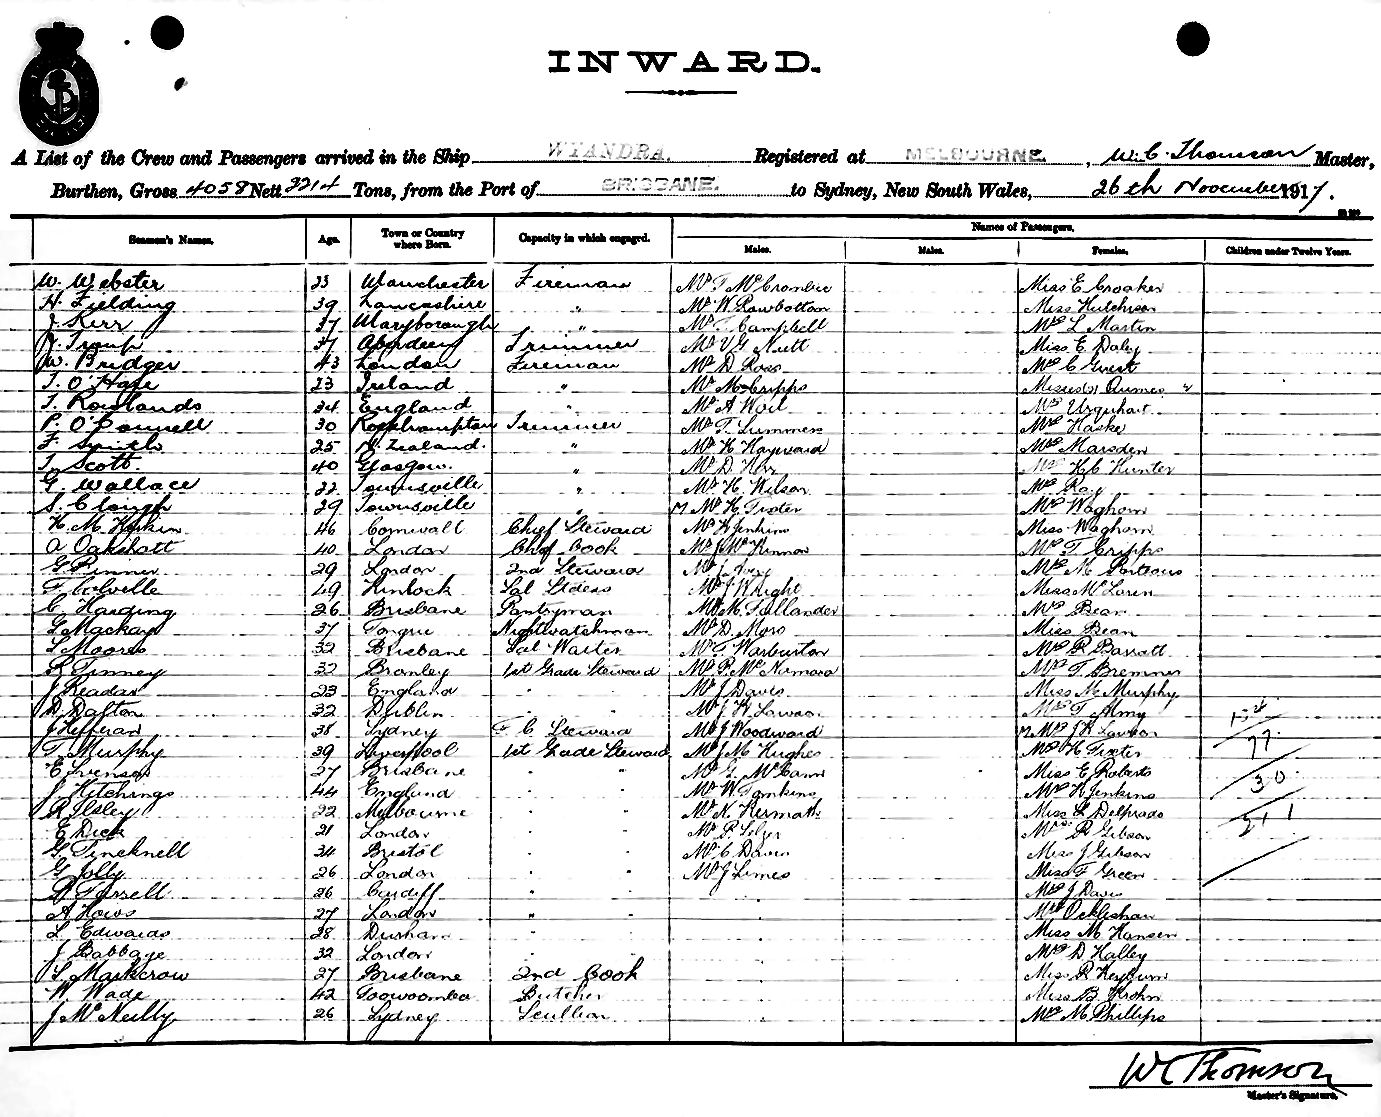 INWARD.
A List of the Crew and Passengers arrived in the Ship WYANDRA. Registered at MELBOURNE. , W. C. Thomson Master,
Burthen, Gross 4058 Nett 2214 Tons, from the Port of BRISBANE. to Sydney, New South Wales, 26th November 1917.
Seamen's Names. Age. Town or Country where Born. Capacity in which engaged. Names of Passengers.
Males. Males. Females. Children under Twelve Years.
W. Webster 23 Manchester Fireman Mr T McCrombie Miss E Croaker
H. Fielding 39 Lancashire " Mr W Rowbottom Miss Hutchison
J. Kerr 37 Maryborough " Mr T Campbell Mrs L Martin
J. Troup 37 Aberdeen Trimmer Mr V G Nutt Miss E Daley
W. Bridger 43 London Fireman Mr D Ross Mrs C Guest
T. O'Hare 23 Ireland " Mr M Cripps Misses (2)
T. Rowlands 34 England " Mr A Weil Mrs Urquhart
P. O'Connell 30 Rockhampton Trimmer Mr T. Mrs Haske
F. Smith 25 N Zealand. " Mr H Hayward Mrs Marsden
T. Scott. 40 Glasgow. " Mr D Kerr Mrs H C Hunter
G. Wallace 22 Townsville " Mr H Wilson Mrs Ray
S. Clough 29 Townsville " Mr H Trster Mrs Waghorn
H. M. 46 Cornwall Chief Steward Mr H Jenkins Miss Waghorn
A Oakshott 40 London Chief Cook Mr J McKinnon Mrs T. Cripps
G Pinner 29 London 2nd Steward Mr J Mrs M Porteous
F Colville 49 Kinlock Sal Stdess Mr J Wright Miss McLaren
C Harding 26 Brisbane Pantryman Mr M Tallander Mrs Bean
G Mackay 37 Tongue Nightwatchman Mr D. Moss Miss Bean
L Moores 32 Brisbane Sal Waiter Mr T Warburton Mrs R Barratt
L Tinney 32 Bromley 1st Grade Steward Mr P. McNamara Mrs T Bremner
J Readar 23 England " Mr J Davis Miss M Murphy
D Dalton 32 Dublin " Mr J H Lawson Mrs T Almy
J Heffernan 38 Sydney F C Steward Mr J Woodward Mrs J H Lawson
T. Murphy 39 Liverpool 1st Grade Steward Mr J M Hughes Mrs H Trster 77
E Svenson 27 Brisbane " " Mr G. McCann Miss E Roberts
J Hitchings 44 England " " Mr W Tomkins Mrs H Jenkins 30
R Ilsley 22 Melbourne " " Mr K. Kermath Miss L Delprado
E Dick 21 London " " Mr P. Mrs R Gibson
G Tincknell 34 Bristol " " Mr C Davis Miss J Gibson
G Jolly 26 London " " Mr J Limes Miss F Green
D Farrell 26 Cardiff " " Mrs J Davis
A Hows 27 London " " Mrs
L Edwards 28 Durham " " Miss M Hansen
J Babbage 32 London " " Mrs D Halley
L. Markcrow 27 Brisbane 2nd Cook Miss R
W Wade 42 Toowoomba Butcher Miss B Krohn
J McNeilly 26 Sydney Scullion Mrs M Phillips
W C Thomson
Master's Signature.